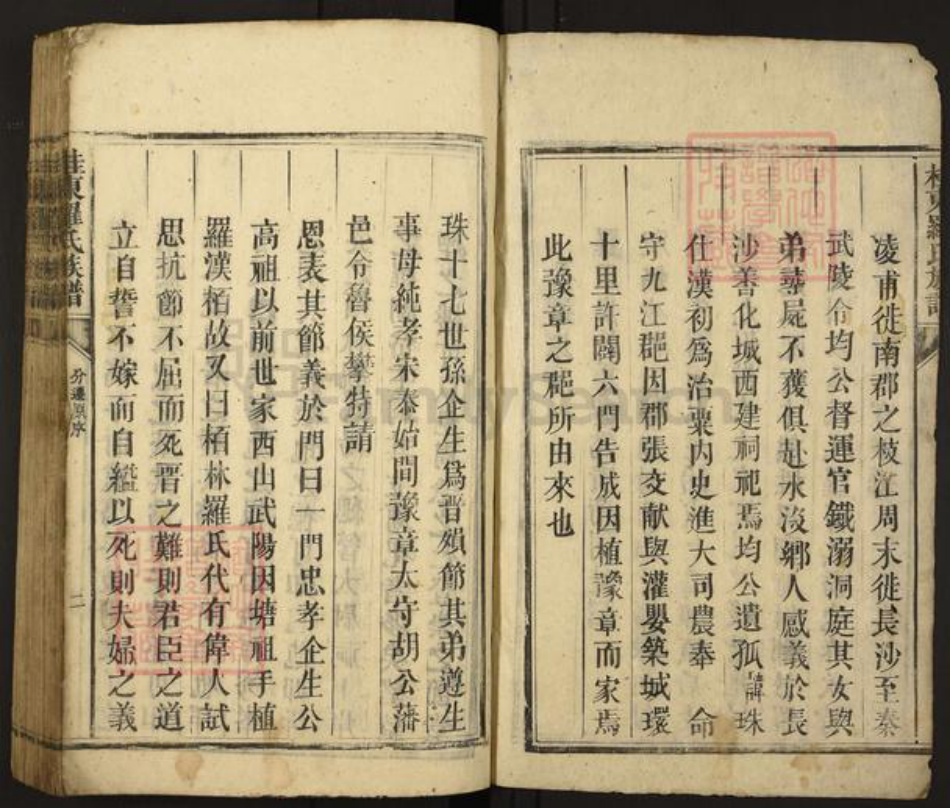 凌甫徙南郡之枝江周末徙長沙至秦
武陵令均公督運官鐵溺洞庭其女與
弟尋屍不獲俱赴水沒鄉人感義於長
沙善化城西建祠祀焉均公遺孤諱珠
仕漢初爲治粟內史進大司農奉 命
守九江郡因郡張交献與灌嬰築城環
十里許闢六門告成因植豫章而家焉
此豫章之郡所由來也
珠十七世孫企生爲晋殞節其弟遵生
事母純孝宋泰始間豫章太守胡公藩
邑令魯侯攀特請
恩表其節義於門曰一門忠孝企生公
高祖以前世家西山武陽因塘祖手植
羅漢栢故又曰栢林羅氏代有偉人試
思抗節不屈而死晋之難則君臣之道
立自誓不嫁而自縊以死則夫婦之義
桂東羅氏族譜
分遷原序
二